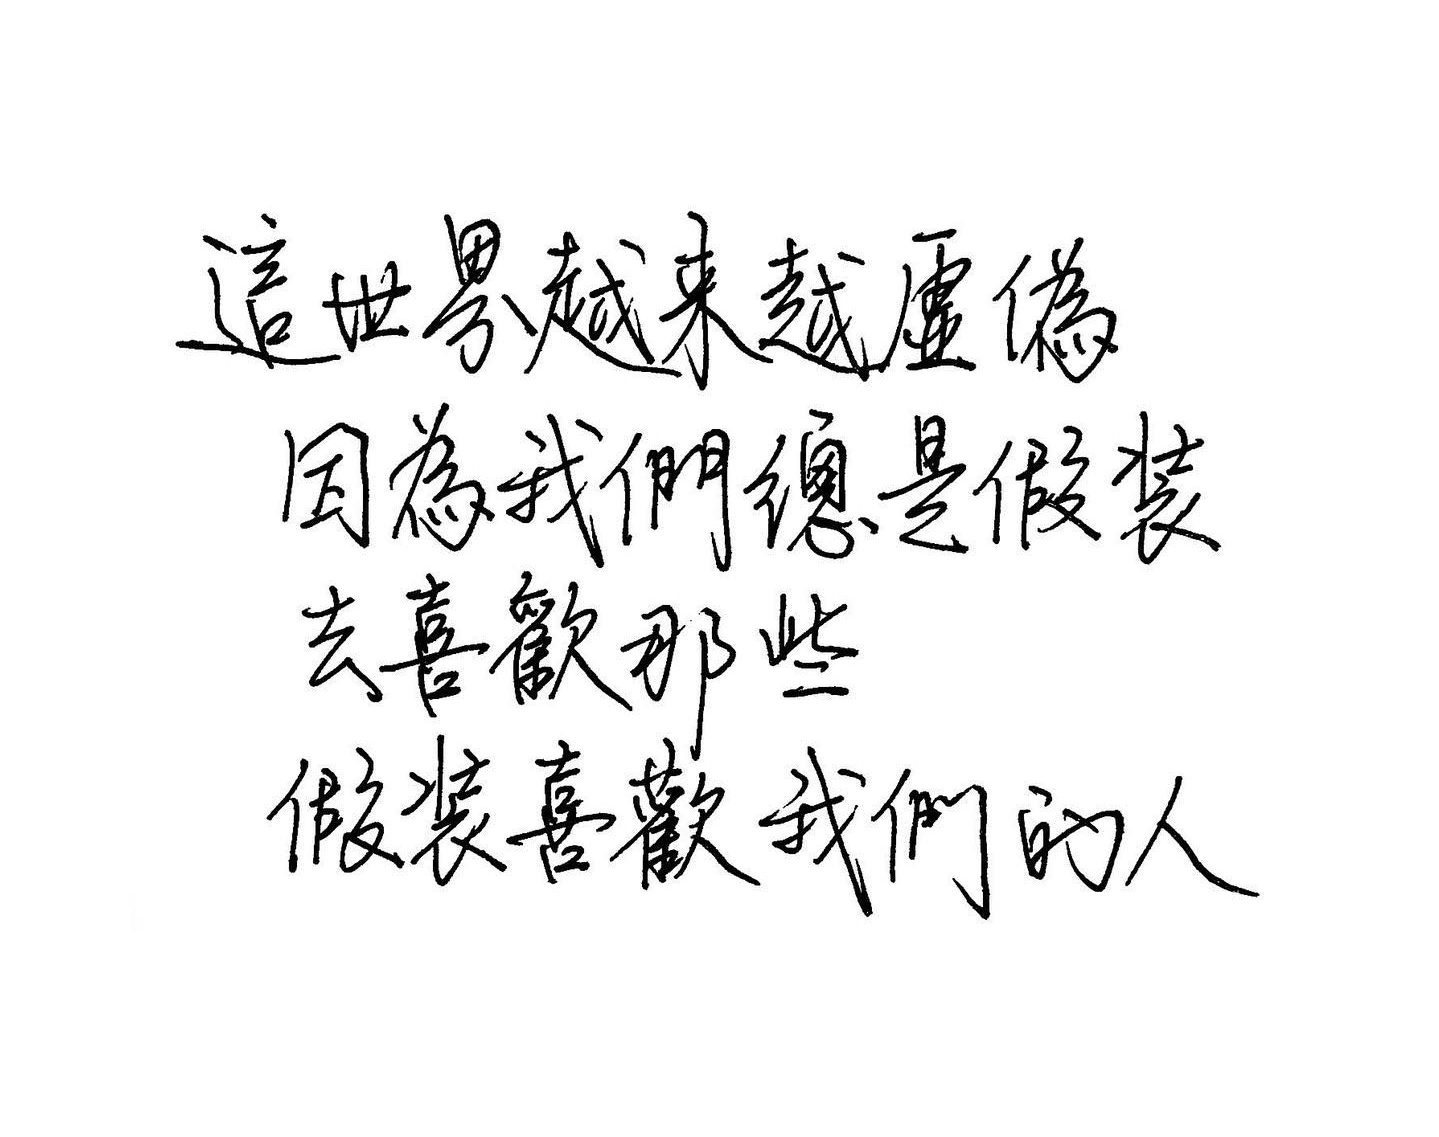 這世界越来越虛偽
因為我們總是假装
去喜歡那些
假装喜歡我們的人